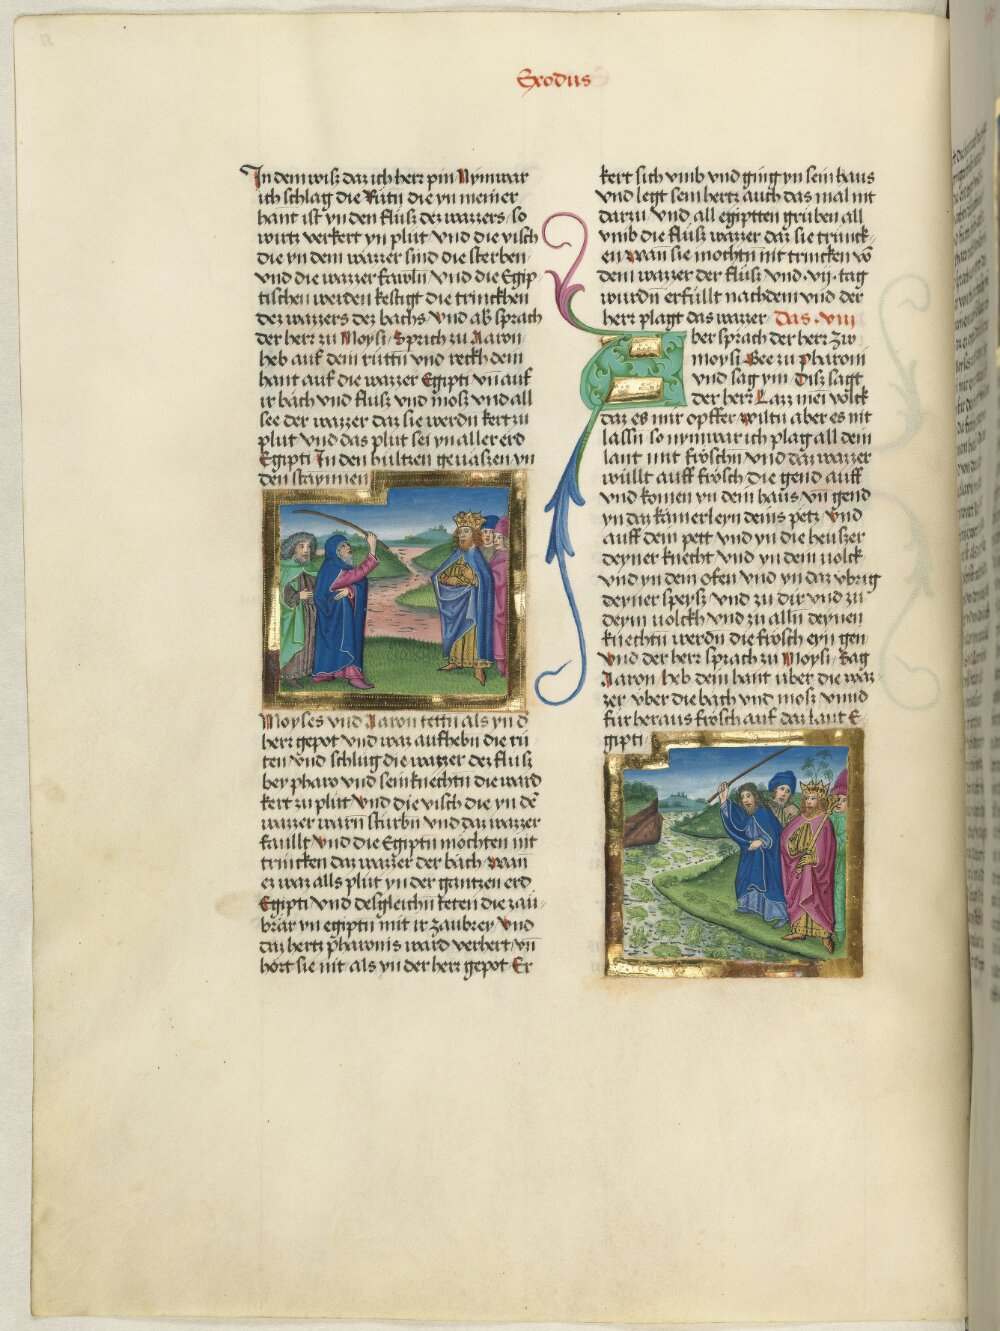 Exodus
In dem wisz daz ich herr pin Nymwar
ich schlag die Rutn die yn meiner
hant ist yn den flusz dez wazzers so
wirtz verkert yn plut vnd die visch
die yn dem wazzer sind die sterben
vnd die wazzer fawoln vnd die Egip
tischen werden kestigt die trinckhen
dez wazzers dez bachs Vnd ab sprach
der herr zu Moysi Sprich zu Aaron
heb auf dein ruttn vnd reckh dein
hant auf die wazzer Egipti vnd auf
ir bach vnd flusz vnd mosz vnd all
see der wazzer daz sie werdn kert zu
plut vnd das plut sei yn aller erd
Egipti In den hultzen gevaszen yn
den staynnen
Moyses vnd Aaron tettn als yn d
herr gepot vnd waz aufhebn die ru
ten vnd schlug die wazzer dez flusz
bey pharo vnd sein knechtn die ward
kert zu plut Vnd die visch die yn dē
wazzer warn sturbn vnd daz wazzer
faullt Vnd die Egiptn mochten nit
trincken daz wazzer der bach wan
ez waz alls plut yn der gantzen erd
Egipti vnd desgleichn teten die zau
brar yn egiptn mit ir zaubrey Vnd
daz hertz pharonis ward verhert vn̄
hort sie nit als yn der herr gepot Er
kert sich vmb vnd ging yn sein haus
vnd legt sein hertz auch das mal nit
darzu vnd all egiptten gruben all
vmb die flusz wazzer daz sie trunck
en wan sie mochtn nit trincken vō
dem wazzer der flusz vnd .vij. tag
wurdn erfullt nachdem vnd der
herr plagt das wazzer Das .viij
Aber sprach der herr zw
moysi Gee zu pharoni
vnd sag ym Disz sagt
der herr Laz mei volck
daz es mir opffer wiltu aber es nit
lassn so nymwar ich plag all dein
lant mit froschn vnd daz wazzer
wullt auff frosch die gend auff
vnd komen yn dein haus vn̄ gend
yn daz kamerleyn deins petz vnd
auff dein pett vnd yn die heuszer
deyner knecht vnd yn dein volck
vnd yn dein ofen vnd yn daz vbrig
deyner speysz vnd zu dir vnd zu
deym volckh vnd zu alln deynen
knechtn werdn die frosch eyn gen
Vnd der herr sprach zu Moysi Sag
Aaron heb dein hant vber die waz
zer vber die bach vnd mosz vnnd
fur heraus frosch auf daz lant E
gipti